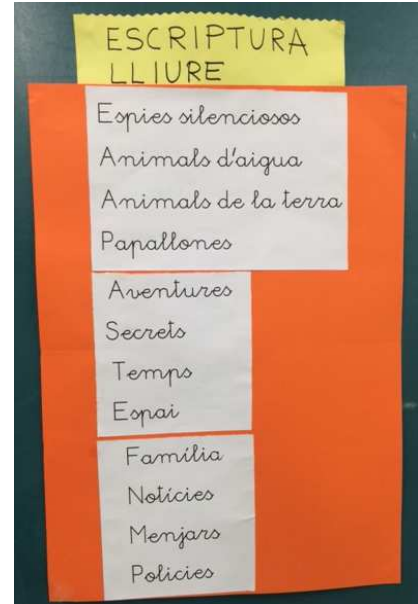 ESCRIPTURA
LLIURE
Espies silenciosos
Animals d'aigua
Animals de la terra
Papallones
Aventures
Secrets
Temps
Espai
Família
Notícies
Menjars
Policies